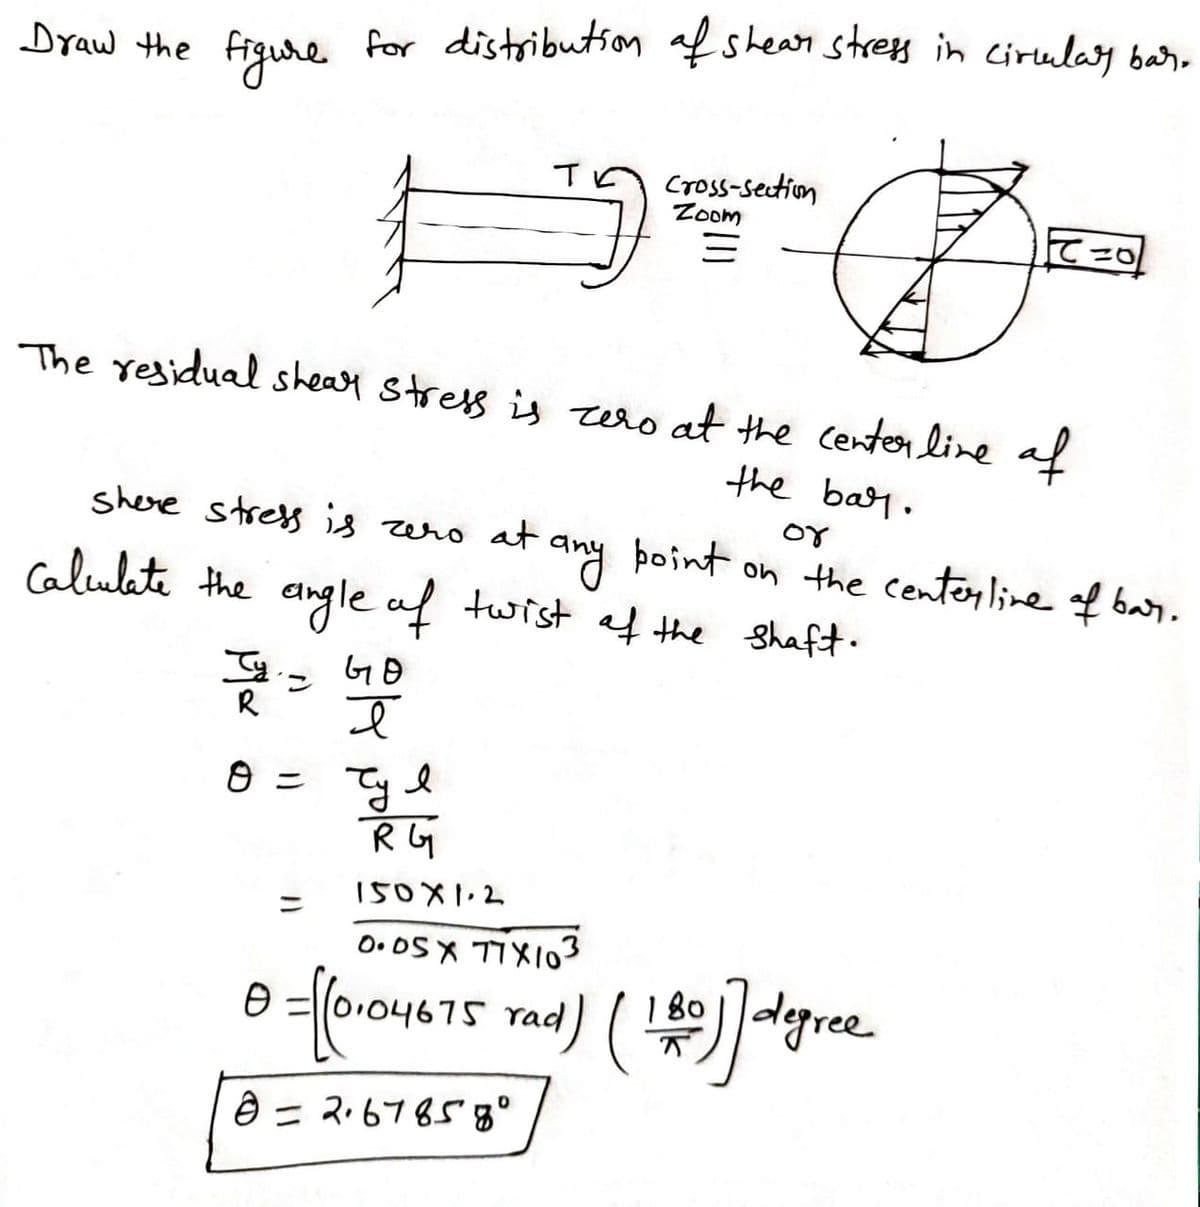 Draw the figure for distribution of shear stress in circular bar.
T
Cross-section
Zoom
τ = 0
The residual shear stress is zero at the center line of
the bar.
or
shere stress is zero at any point on the centerline of bar.
Calculate the angle of twist of the shaft.
τy/R = Gθ/l
θ = τy l/RG
= 150×1.2/0.05×77×10³
θ = [(0.04675 rad) (180/π)] degree
θ = 2.67858°